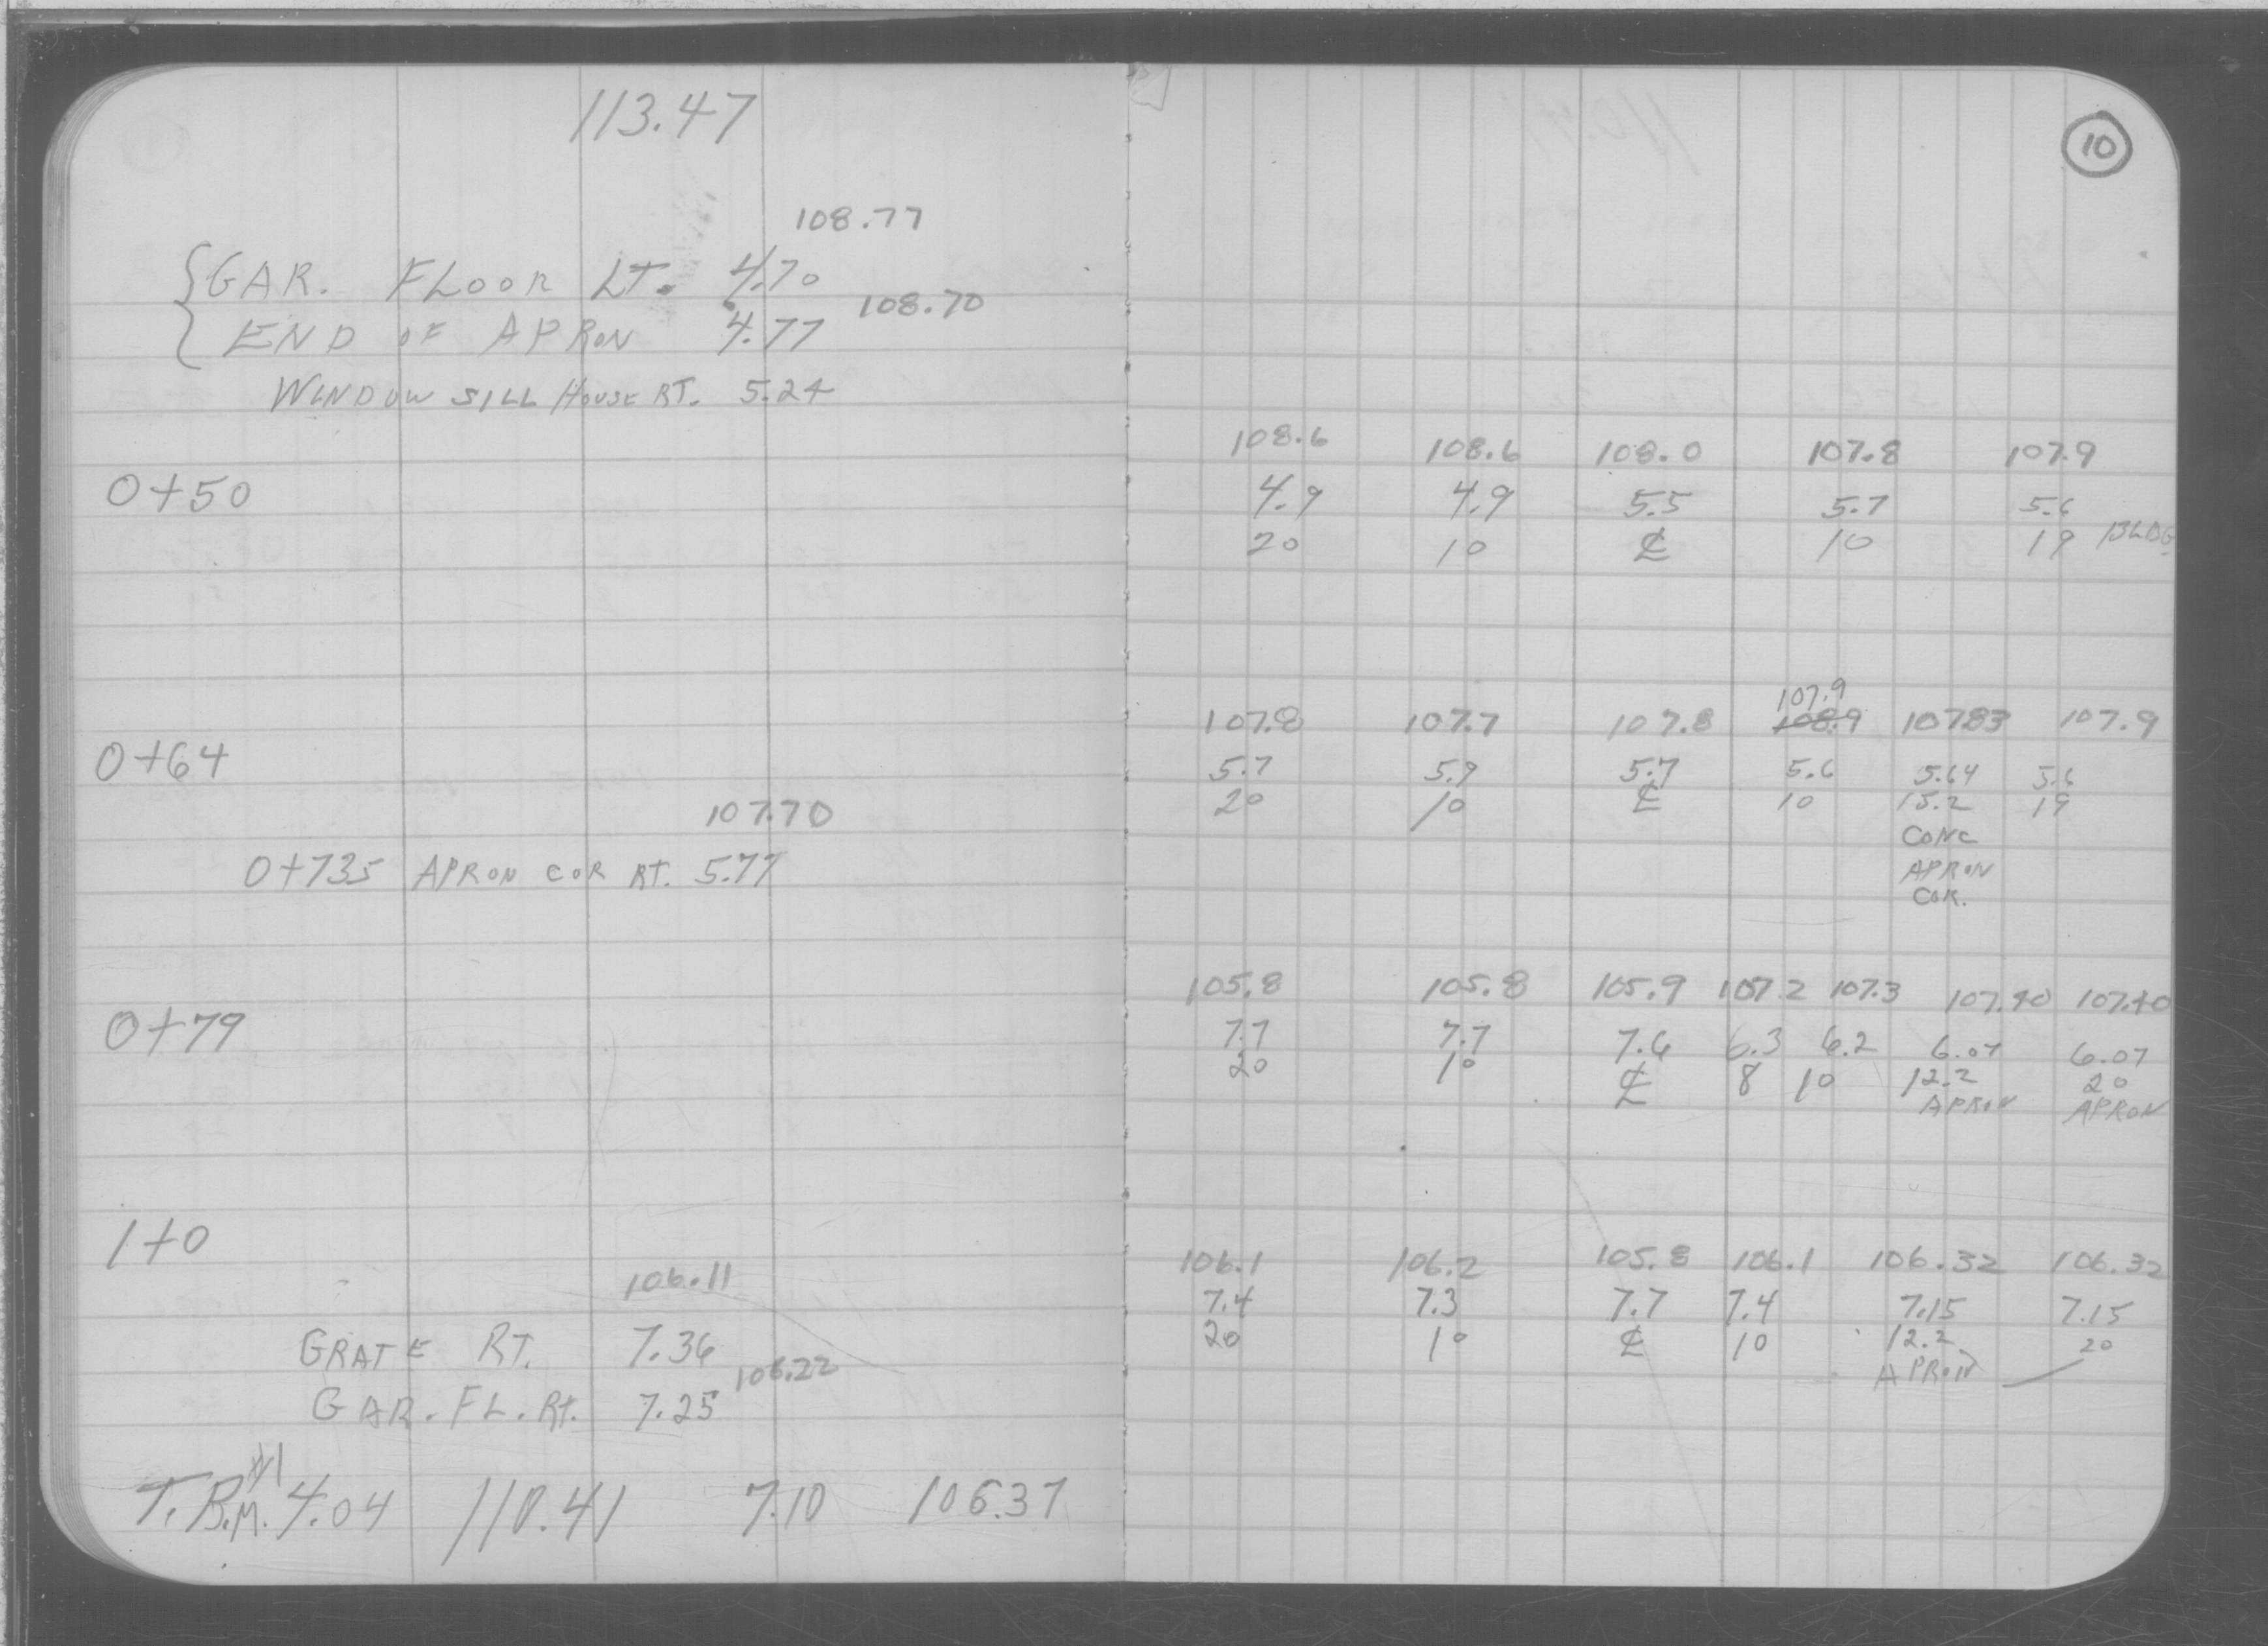 113.47
108.77
GAR. FLOOR LT. 4.70
108.70
END OF APRON 4.77
WINDOW SILL HOUSE RT. 5.24
0+50
0+64
107.70
0+735 APRON COR RT. 5.77
0+79
1+0
106.11
GRATE RT. 7.36
106.22
GAR. FL. RT. 7.25
#1
T.B.M. 4.04 110.41 7.10 106.37
10
108.6 108.6 108.0 107.8 107.9
4.9 4.9 5.5 5.7 5.6
20 10 ℄ 10 19 BLDG
107.9
107.8 107.7 107.8 108.9 107.83 107.9
5.7 5.9 5.7 5.6 5.64 5.6
20 10 ℄ 10 15.2 19
CONC
APRON
COR.
105.8 105.8 105.9 107.2 107.3 107.40 107.40
7.7 7.7 7.6 6.3 6.2 6.07 6.07
20 10 ℄ 8 10 12.2 20
APRON APRON
106.1 106.2 105.8 106.1 106.32 106.32
7.4 7.3 7.7 7.4 7.15 7.15
20 10 ℄ 10 12.2 20
APRON